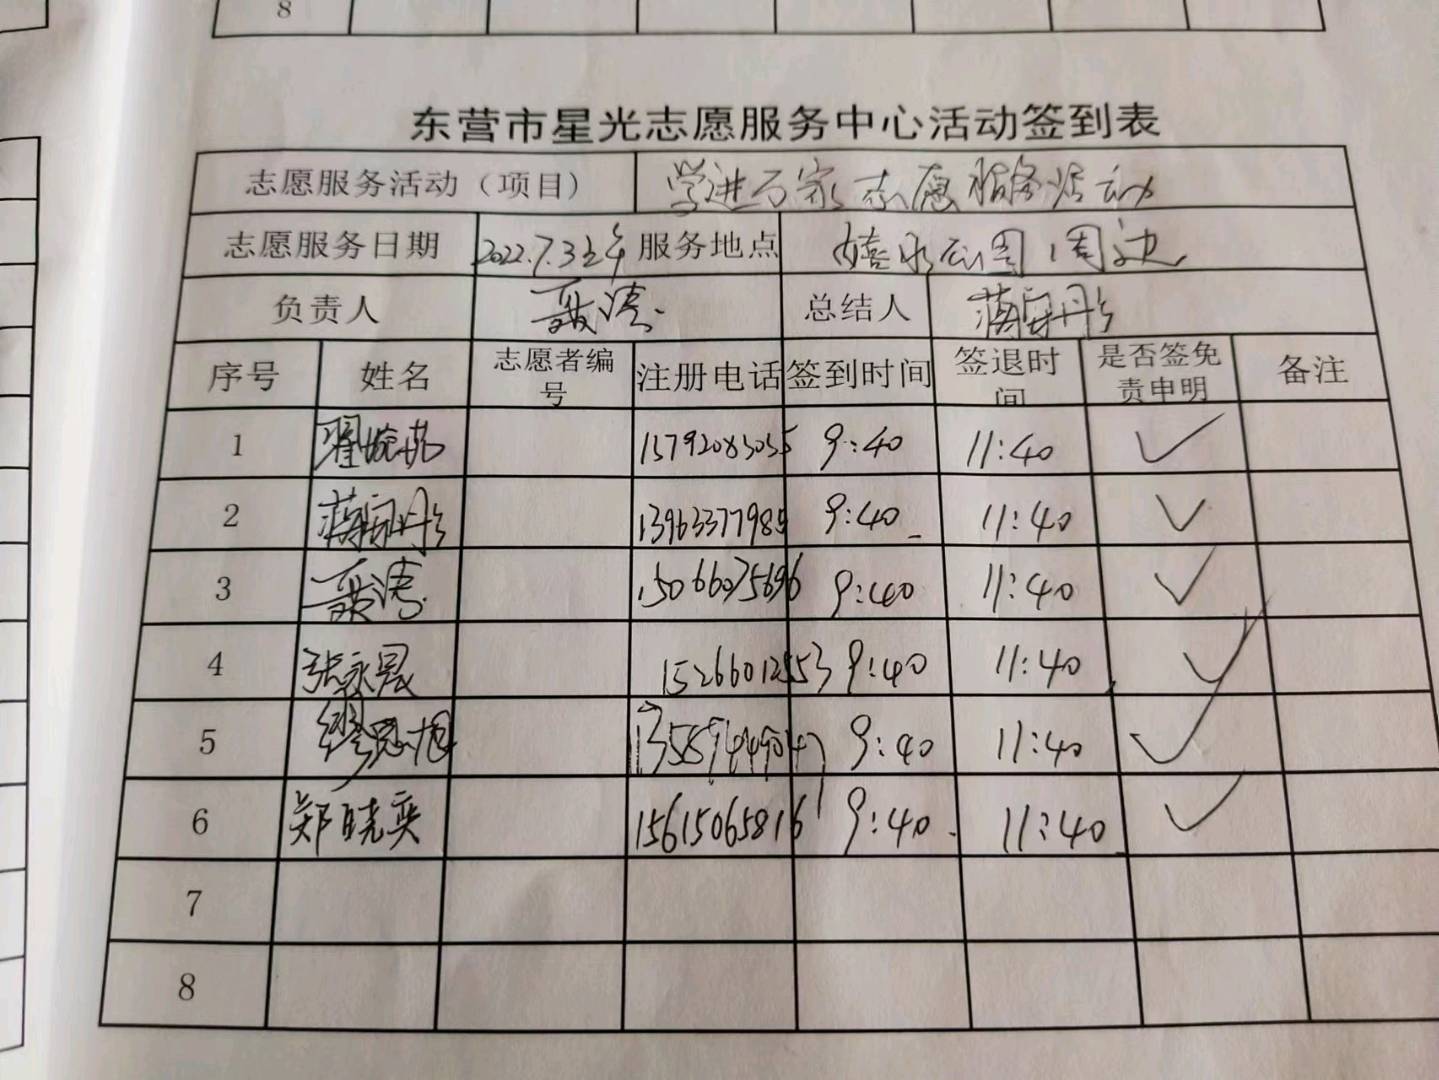 8
东营市星光志愿服务中心活动签到表
志愿服务活动（项目） 学进万家志愿服务活动
志愿服务日期 2022.7.3上午 服务地点 公园周边
负责人 聂涛 总结人
序号 姓名 志愿者编号 注册电话 签到时间 签退时间 是否签免责申明 备注
1 9:40 11:40 ✓
2 13963377985 9:40 11:40 ✓
3 聂涛 15066075696 9:40 11:40 ✓
4 张永晟 15266012553 9:40 11:40 ✓
5 13589449047 9:40 11:40 ✓
6 郑晓奕 15615065816 9:40 11:40 ✓
7
8